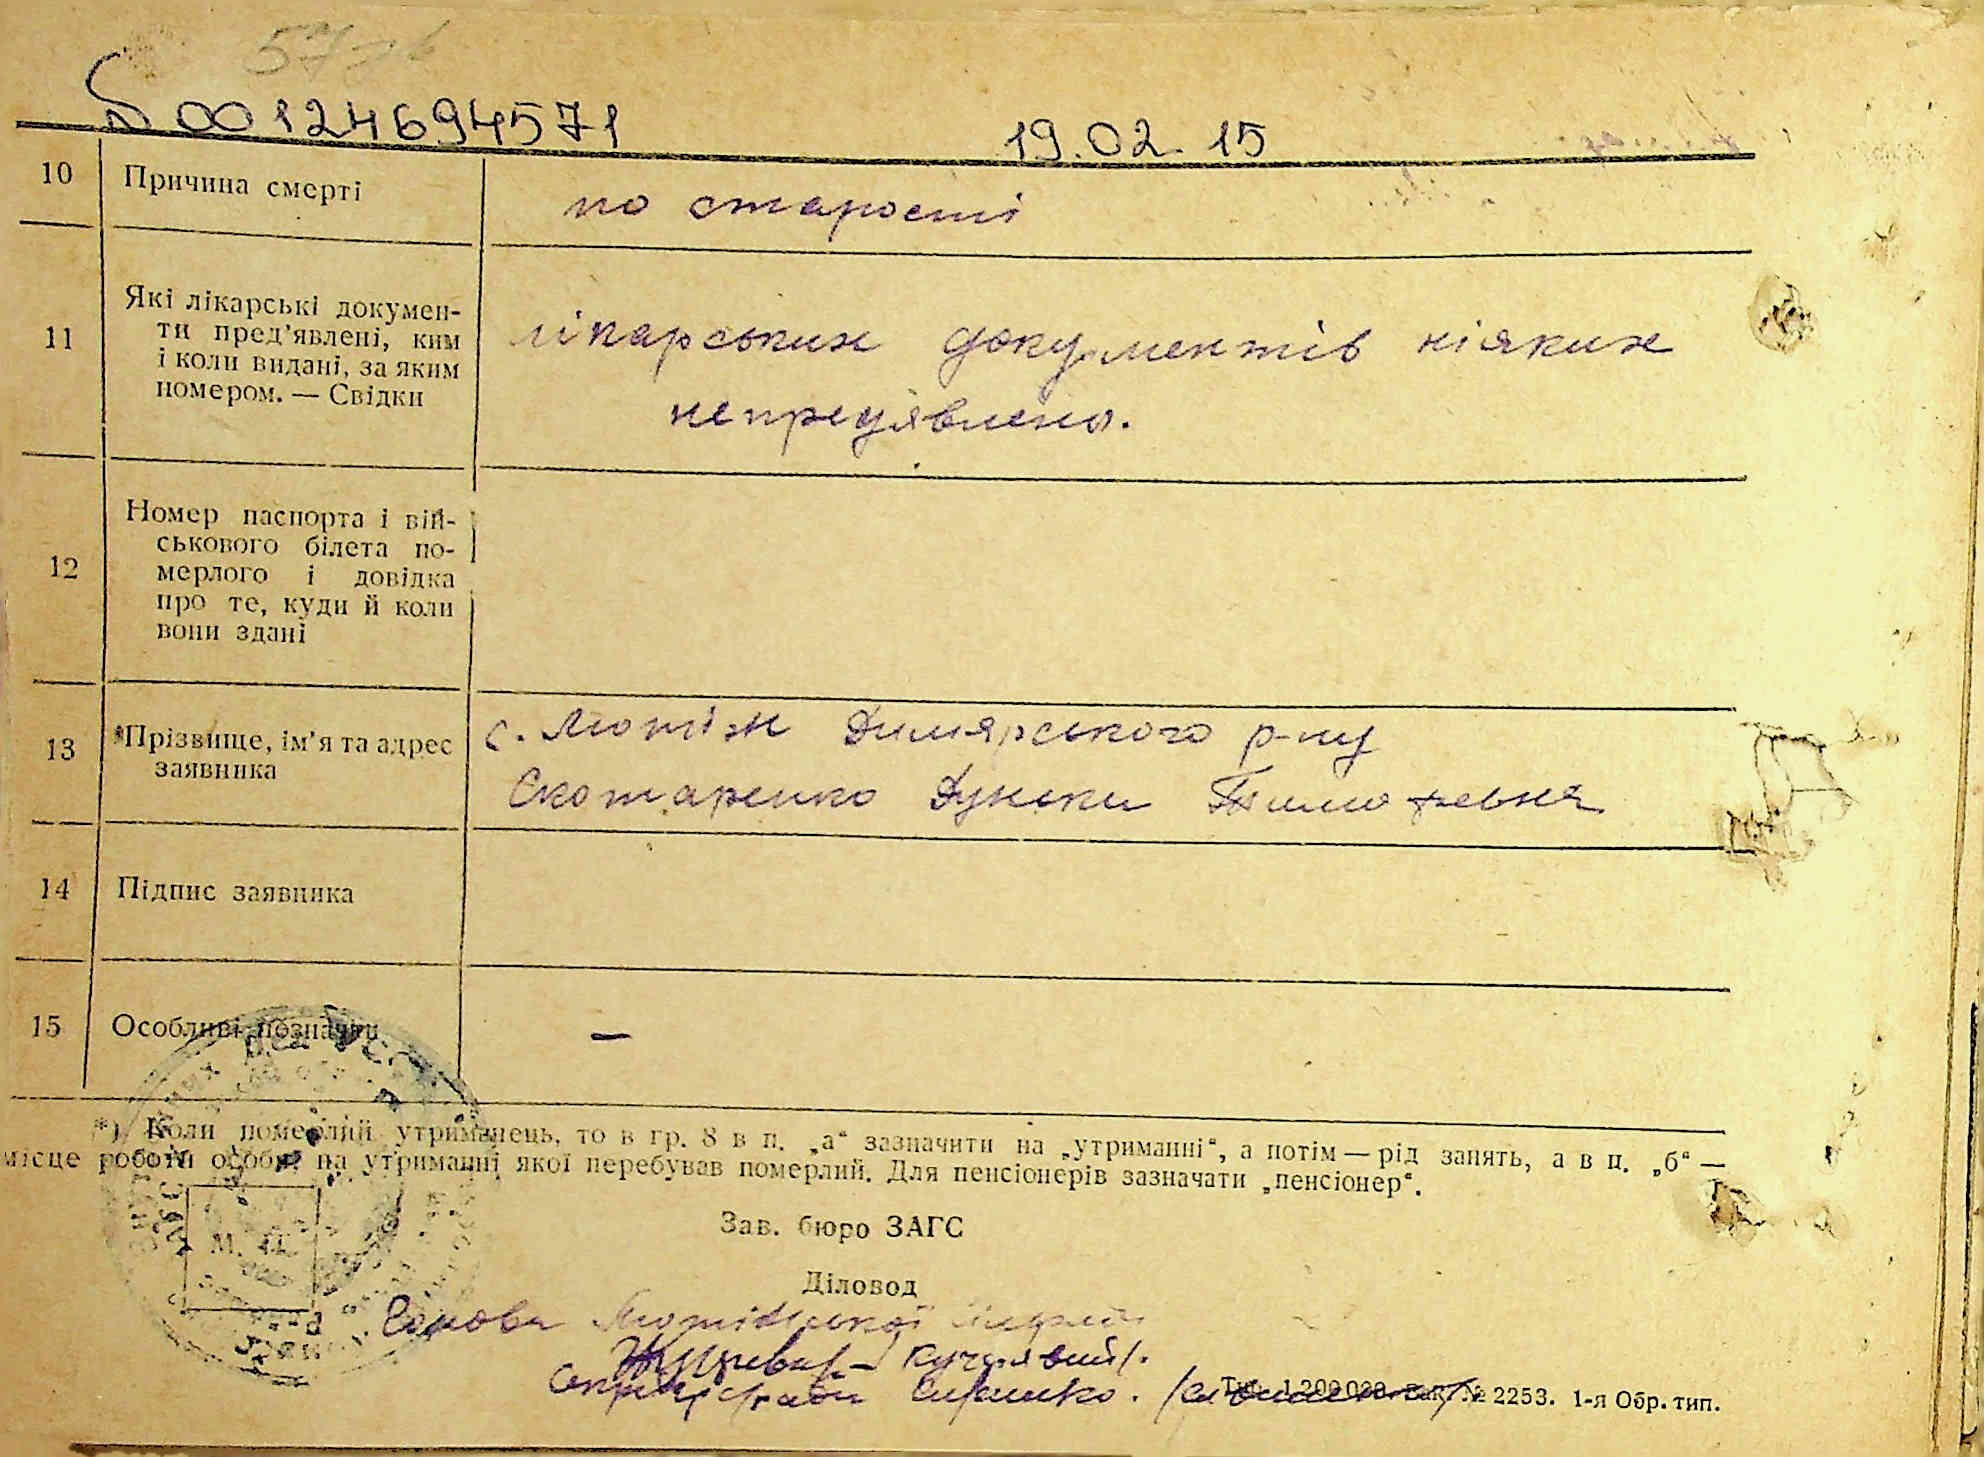 00124694571 19.02.15
10 Причина смерті по старості
11 Які лікарські докумен-
ти пред'явлені, ким
і коли видані, за яким
номером. — Свідки
лікарських документів ніяких
непредявлено.
12 Номер паспорта і вій-
ськового білета по-
мерлого і довідка
про те, куди й коли
вони здані
13 *Прізвище, ім'я та адрес
заявника
с. Лютіж Димярського р-ну
Скотаренко Дуньки Тимофеевна
14 Підпис заявника
15 Особливі позначки —
*) Коли померлий утриманець, то в гр. 8 в п. „а“ зазначити на „утриманні“, а потім — рід занять, а в п. „б“ —
місце роботи особи, на утриманні якої перебував померлий. Для пенсіонерів зазначати „пенсіонер“.
М. П.
Зав. бюро ЗАГС
Діловод
Голова Лютіжської
Кучерявий/.
Секретар с/ради
Тир. 1.200.000. Зак. № 2253. 1-я Обр. тип.